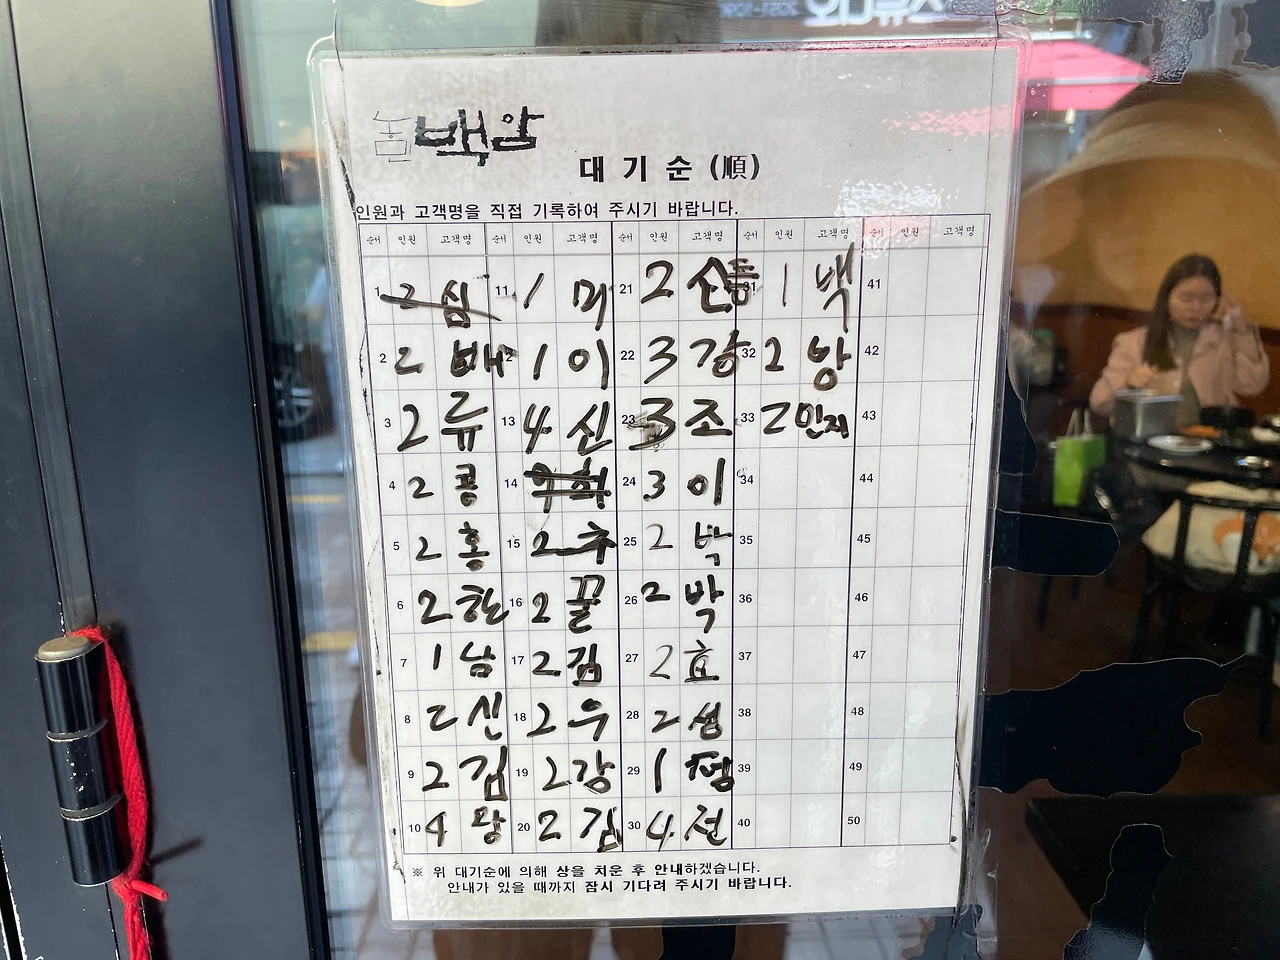 돈백암
대기순(順)
인원과 고객명을 직접 기록하여 주시기 바랍니다.
순서 인원 고객명 순서 인원 고객명 순서 인원 고객명 순서 인원 고객명 순서 인원 고객명
1 2 심 11 1 미 21 2 손 31 1 백 41
2 2 배 12 1 이 22 3 강 32 2 방 42
3 2 류 13 4 신 23 3 조 33 2 민지 43
4 2 콩 14 24 3 이 34 44
5 2 홍 15 2 추 25 2 박 35 45
6 2 한 16 2 꿀 26 2 박 36 46
7 1 남 17 2 김 27 2 효 37 47
8 2 신 18 2 우 28 2 성 38 48
9 2 김 19 2 강 29 1 39 49
10 4 20 2 김 30 4 전 40 50
※ 위 대기순에 의해 상을 치운 후 안내하겠습니다.
안내가 있을 때까지 잠시 기다려 주시기 바랍니다.